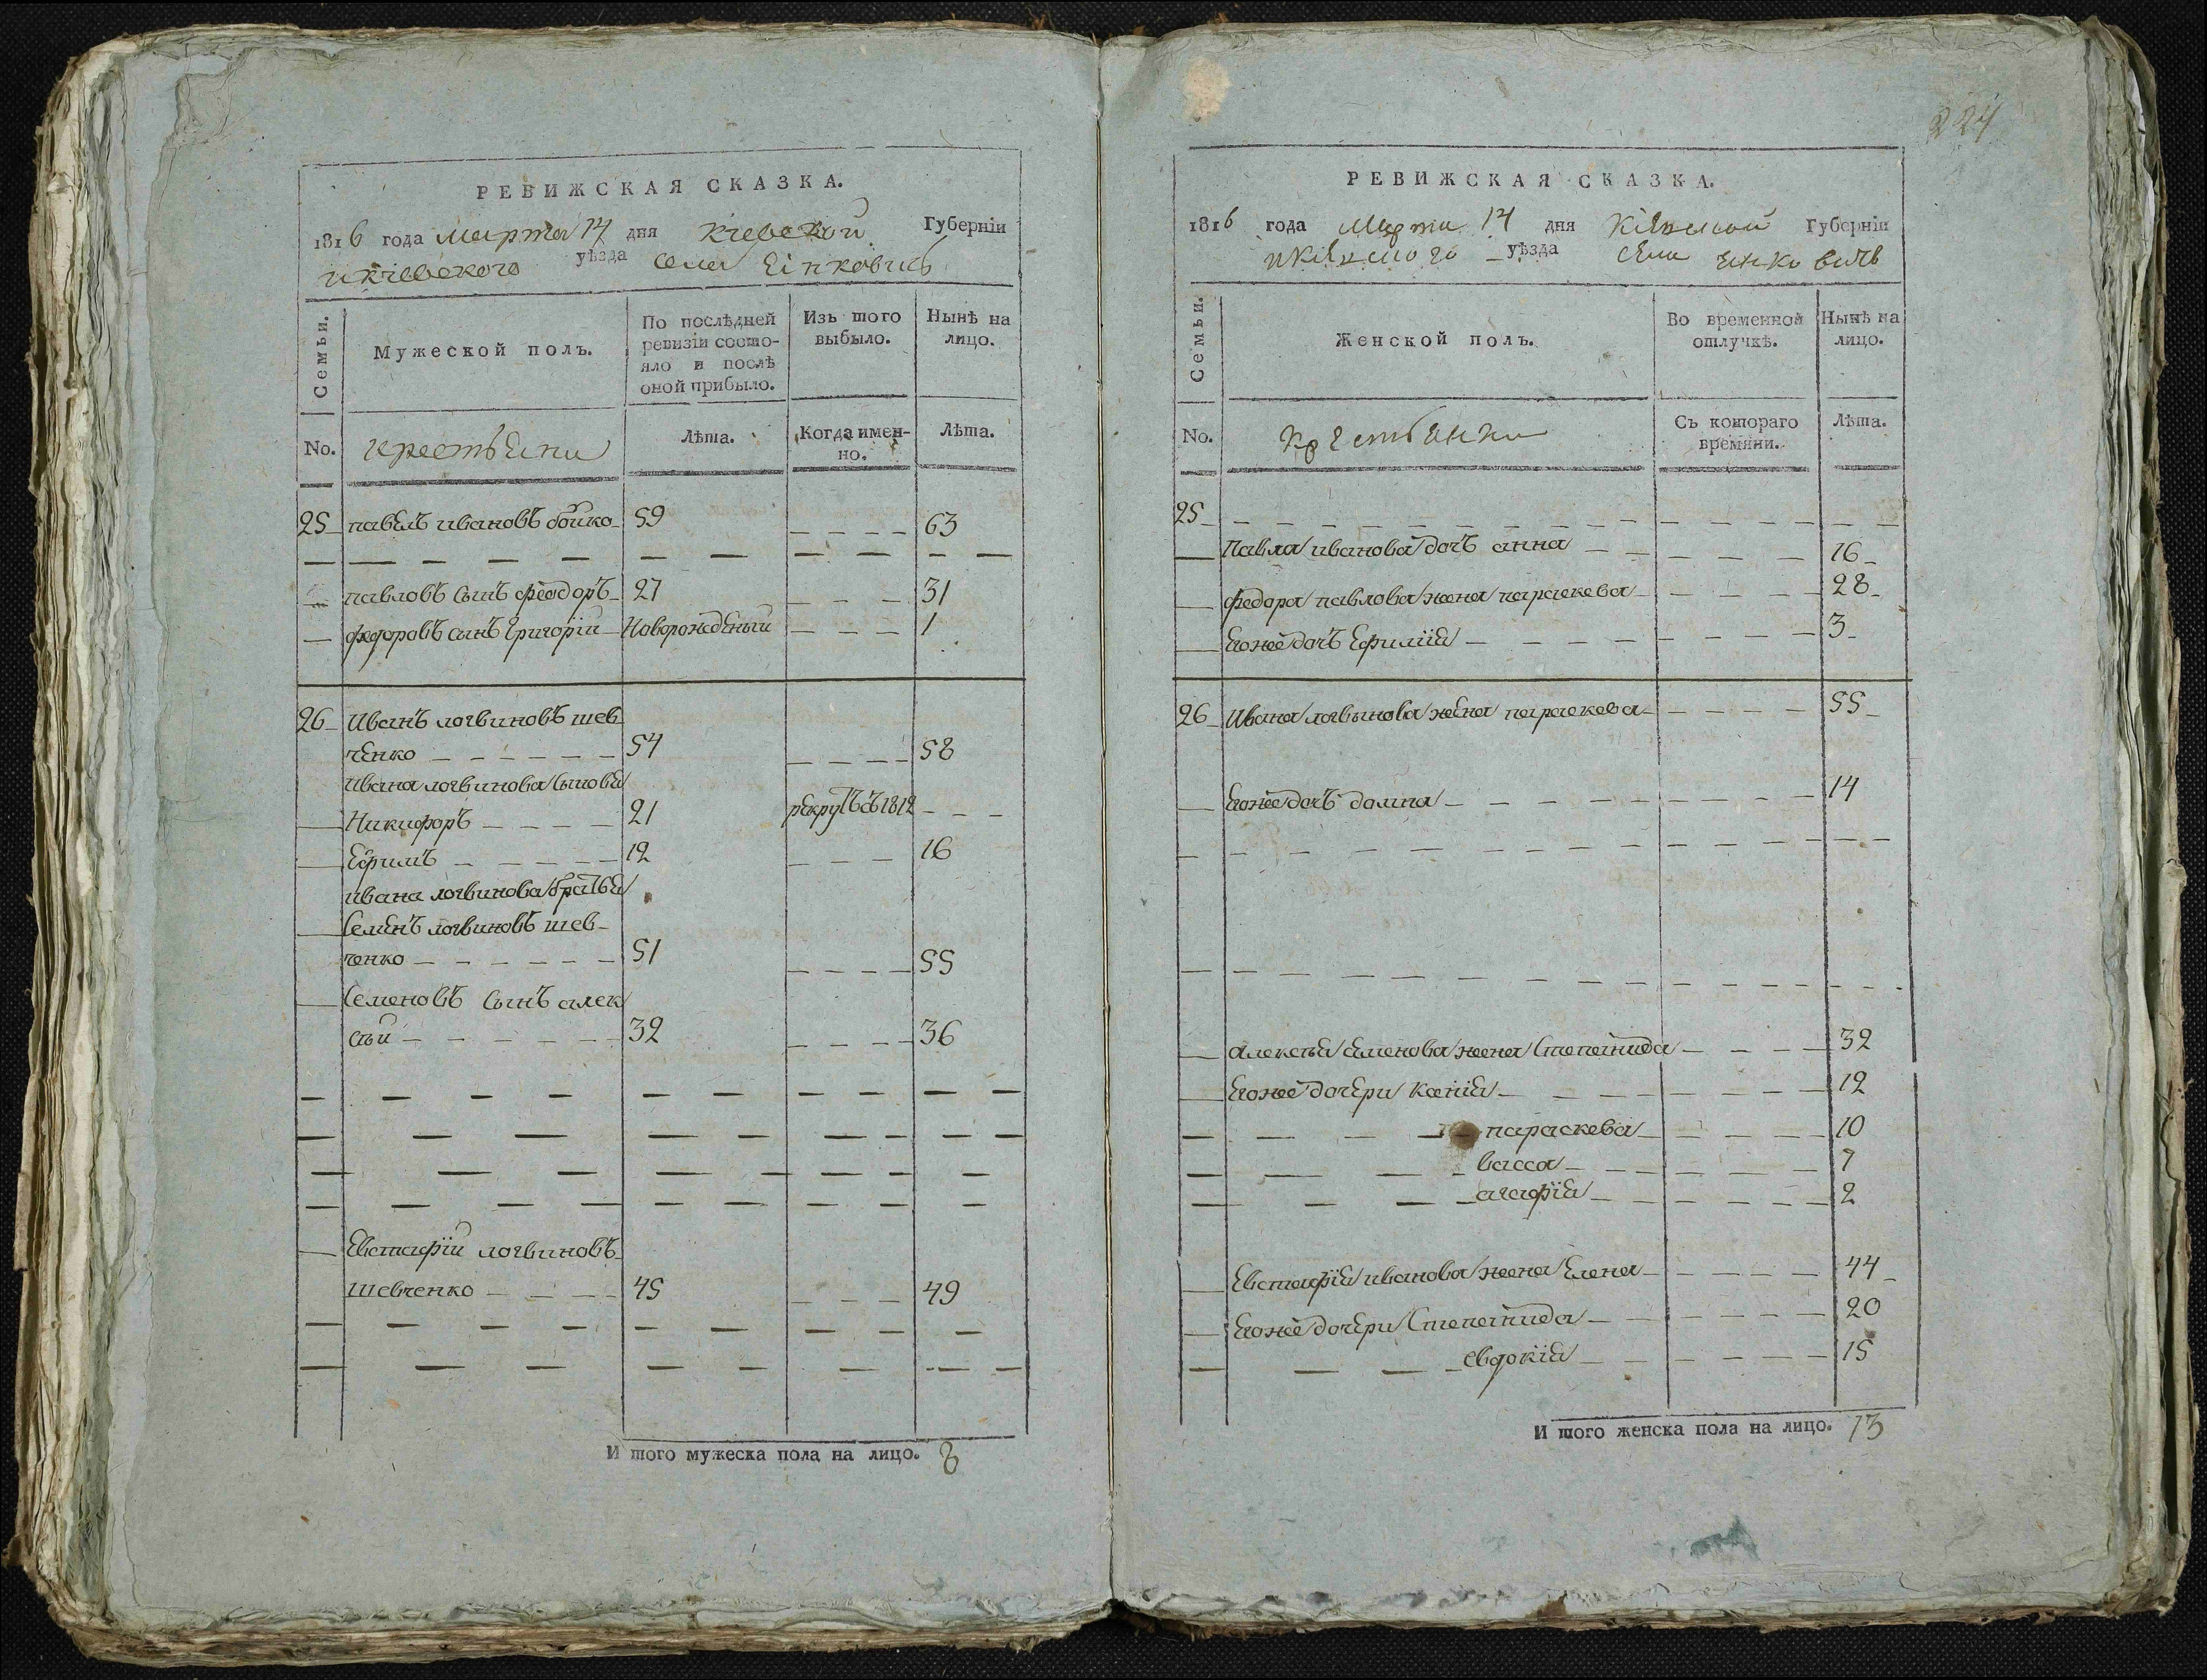 РЕВИЖСКАЯ СКАЗКА.
1816 года марта 14 дня Кіевской Губерніи
и кіевского уѣзда села
Семьи.
Мужеской полъ.
По послѣдней ревизіи состояло и послѣ оной прибыло.
Изъ того выбыло.
Нынѣ на лицо.
No.
крестьяни
Лѣта.
Когда именно.
Лѣта.
25 павелъ ивановъ бойко 59 63
павловъ сынъ феодоръ 27 31
федоровъ сынъ григорій Новорожденый 1
26 Иванъ логвиновъ шев
ченко 54 58
ивана логвинова сыновя
Никифоръ 21 рекрутъ въ 1812
Ефимъ 12 16
ивана логвинова братья
Семенъ логвиновъ шев
ченко 51 55
Семеновъ сынъ алек
сѣй 32 36
Евстафій логвиновъ
шевченко 45 49
И того мужеска пола на лицо. 8
224
РЕВИЖСКАЯ СКАЗКА.
1816 года Марта 14 дня Кіевской Губерніи
и Кіевского уѣзда села
Семьи.
Женской полъ.
Во временной отлучкѣ.
Нынѣ на лицо.
No.
Крестьянки
Съ котораго времяни.
Лѣта.
25
Павла иванова дочъ анна 16
федора павлова жена параскева 28
Егоже дочъ 3
26 Ивана логвинова жена параскева 55
Егоже дочъ домна 14
алексѣя семенова жена Степанида 32
Егоже дочери ксенія 12
параскева 10
васса 7
агафія 2
Евстафія иванова жена Елена 44
Егоже дочери Степанида 20
евдокія 15
И того женска пола на лицо. 13